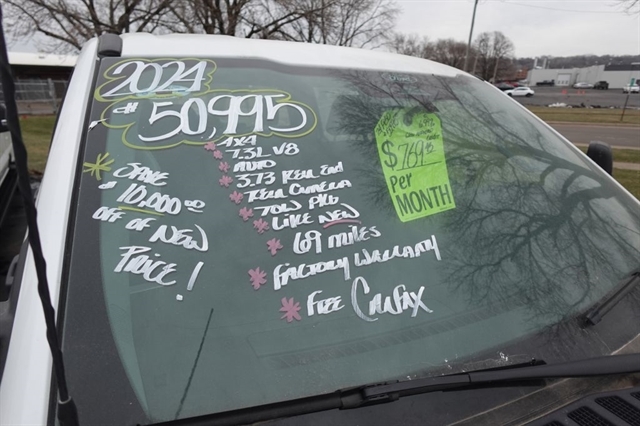 2024
$50,995
4x4
7.3L V8
AUTO
3.73 REAR END
REAR CAMERA
TOW PKG
LIKE NEW
69 MILES
FACTORY WARRANTY
FREE CARFAX
SAVE
$10,000.00
OFF OF NEW
PRICE!
$769.00
Per
MONTH